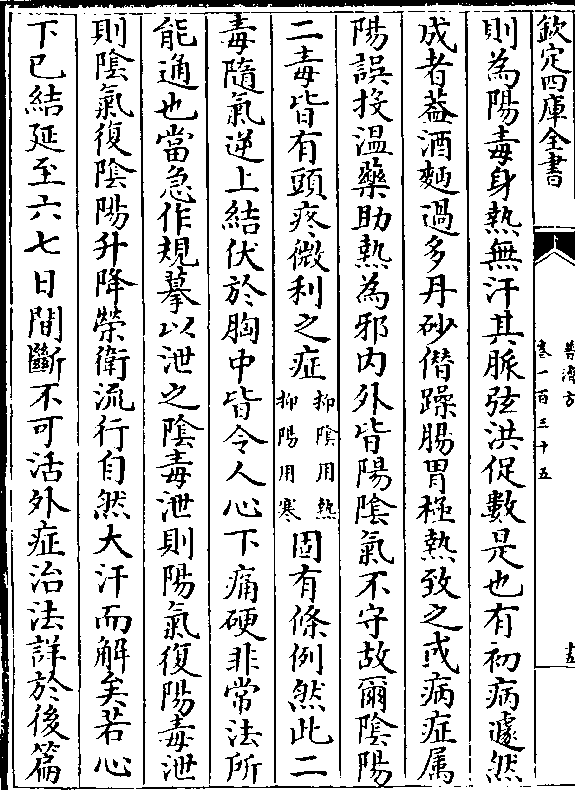 欽定四庫全書
普濟方
卷一百三十五
則為陽毒身熱無汗其脈弦洪促數是也有初病遽然
成者葢酒麵過多丹砂僭躁腸胃極熱致之或病症属
陽誤投温藥助熱為邪内外皆陽陰氣不守故爾陰陽
二毒皆有頭疼微利之症
抑陰用熱
抑陽用寒
固有條例然此二
毒隨氣逆上結伏於胸中皆令人心下痛硬非常法所
能通也當急作規摹以泄之陰毒泄則陽氣復陽毒泄
則陰氣復陰陽升降榮衛流行自然大汗而解矣若心
下已結延至六七日間斷不可活外症治法詳於後篇